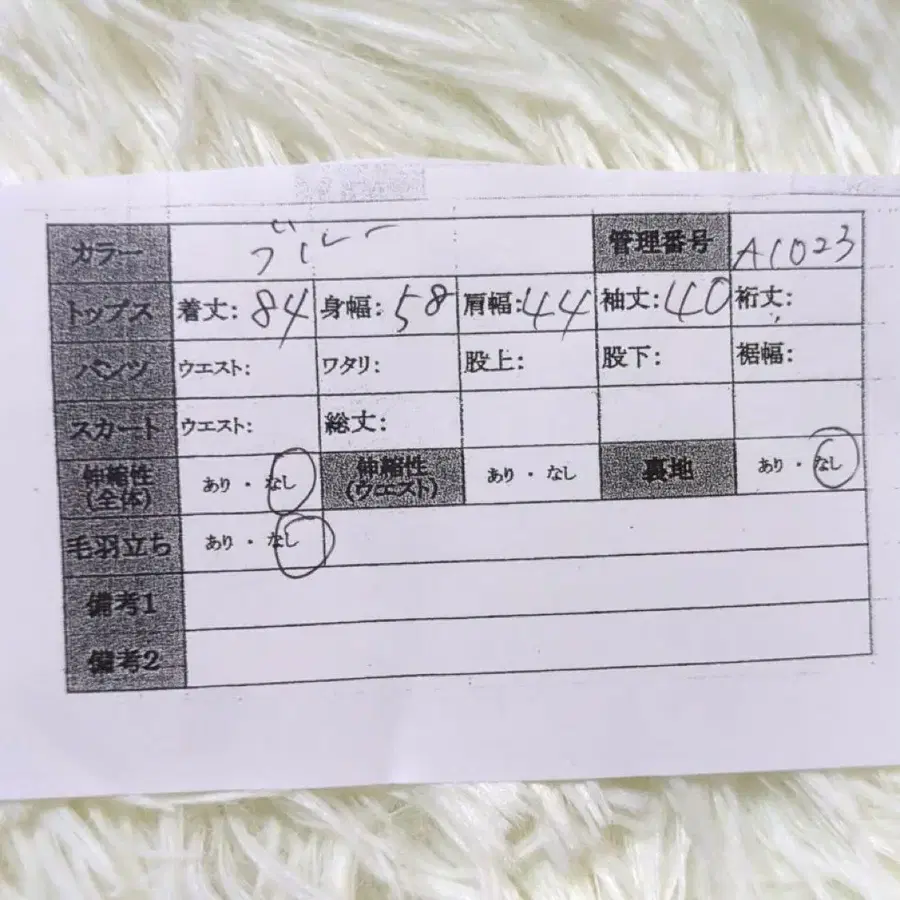 カラー ブルー 管理番号 A1023
トップス 着丈: 84 身幅: 58 肩幅: 44 袖丈: 40 裄丈:
パンツ ウエスト: ワタリ: 股上: 股下: 裾幅:
スカート ウエスト: 総丈:
伸縮性 (全体) あり ・ なし 伸縮性 (ウエスト) あり ・ なし 裏地 あり ・ なし
毛羽立ち あり ・ なし
備考1
備考2